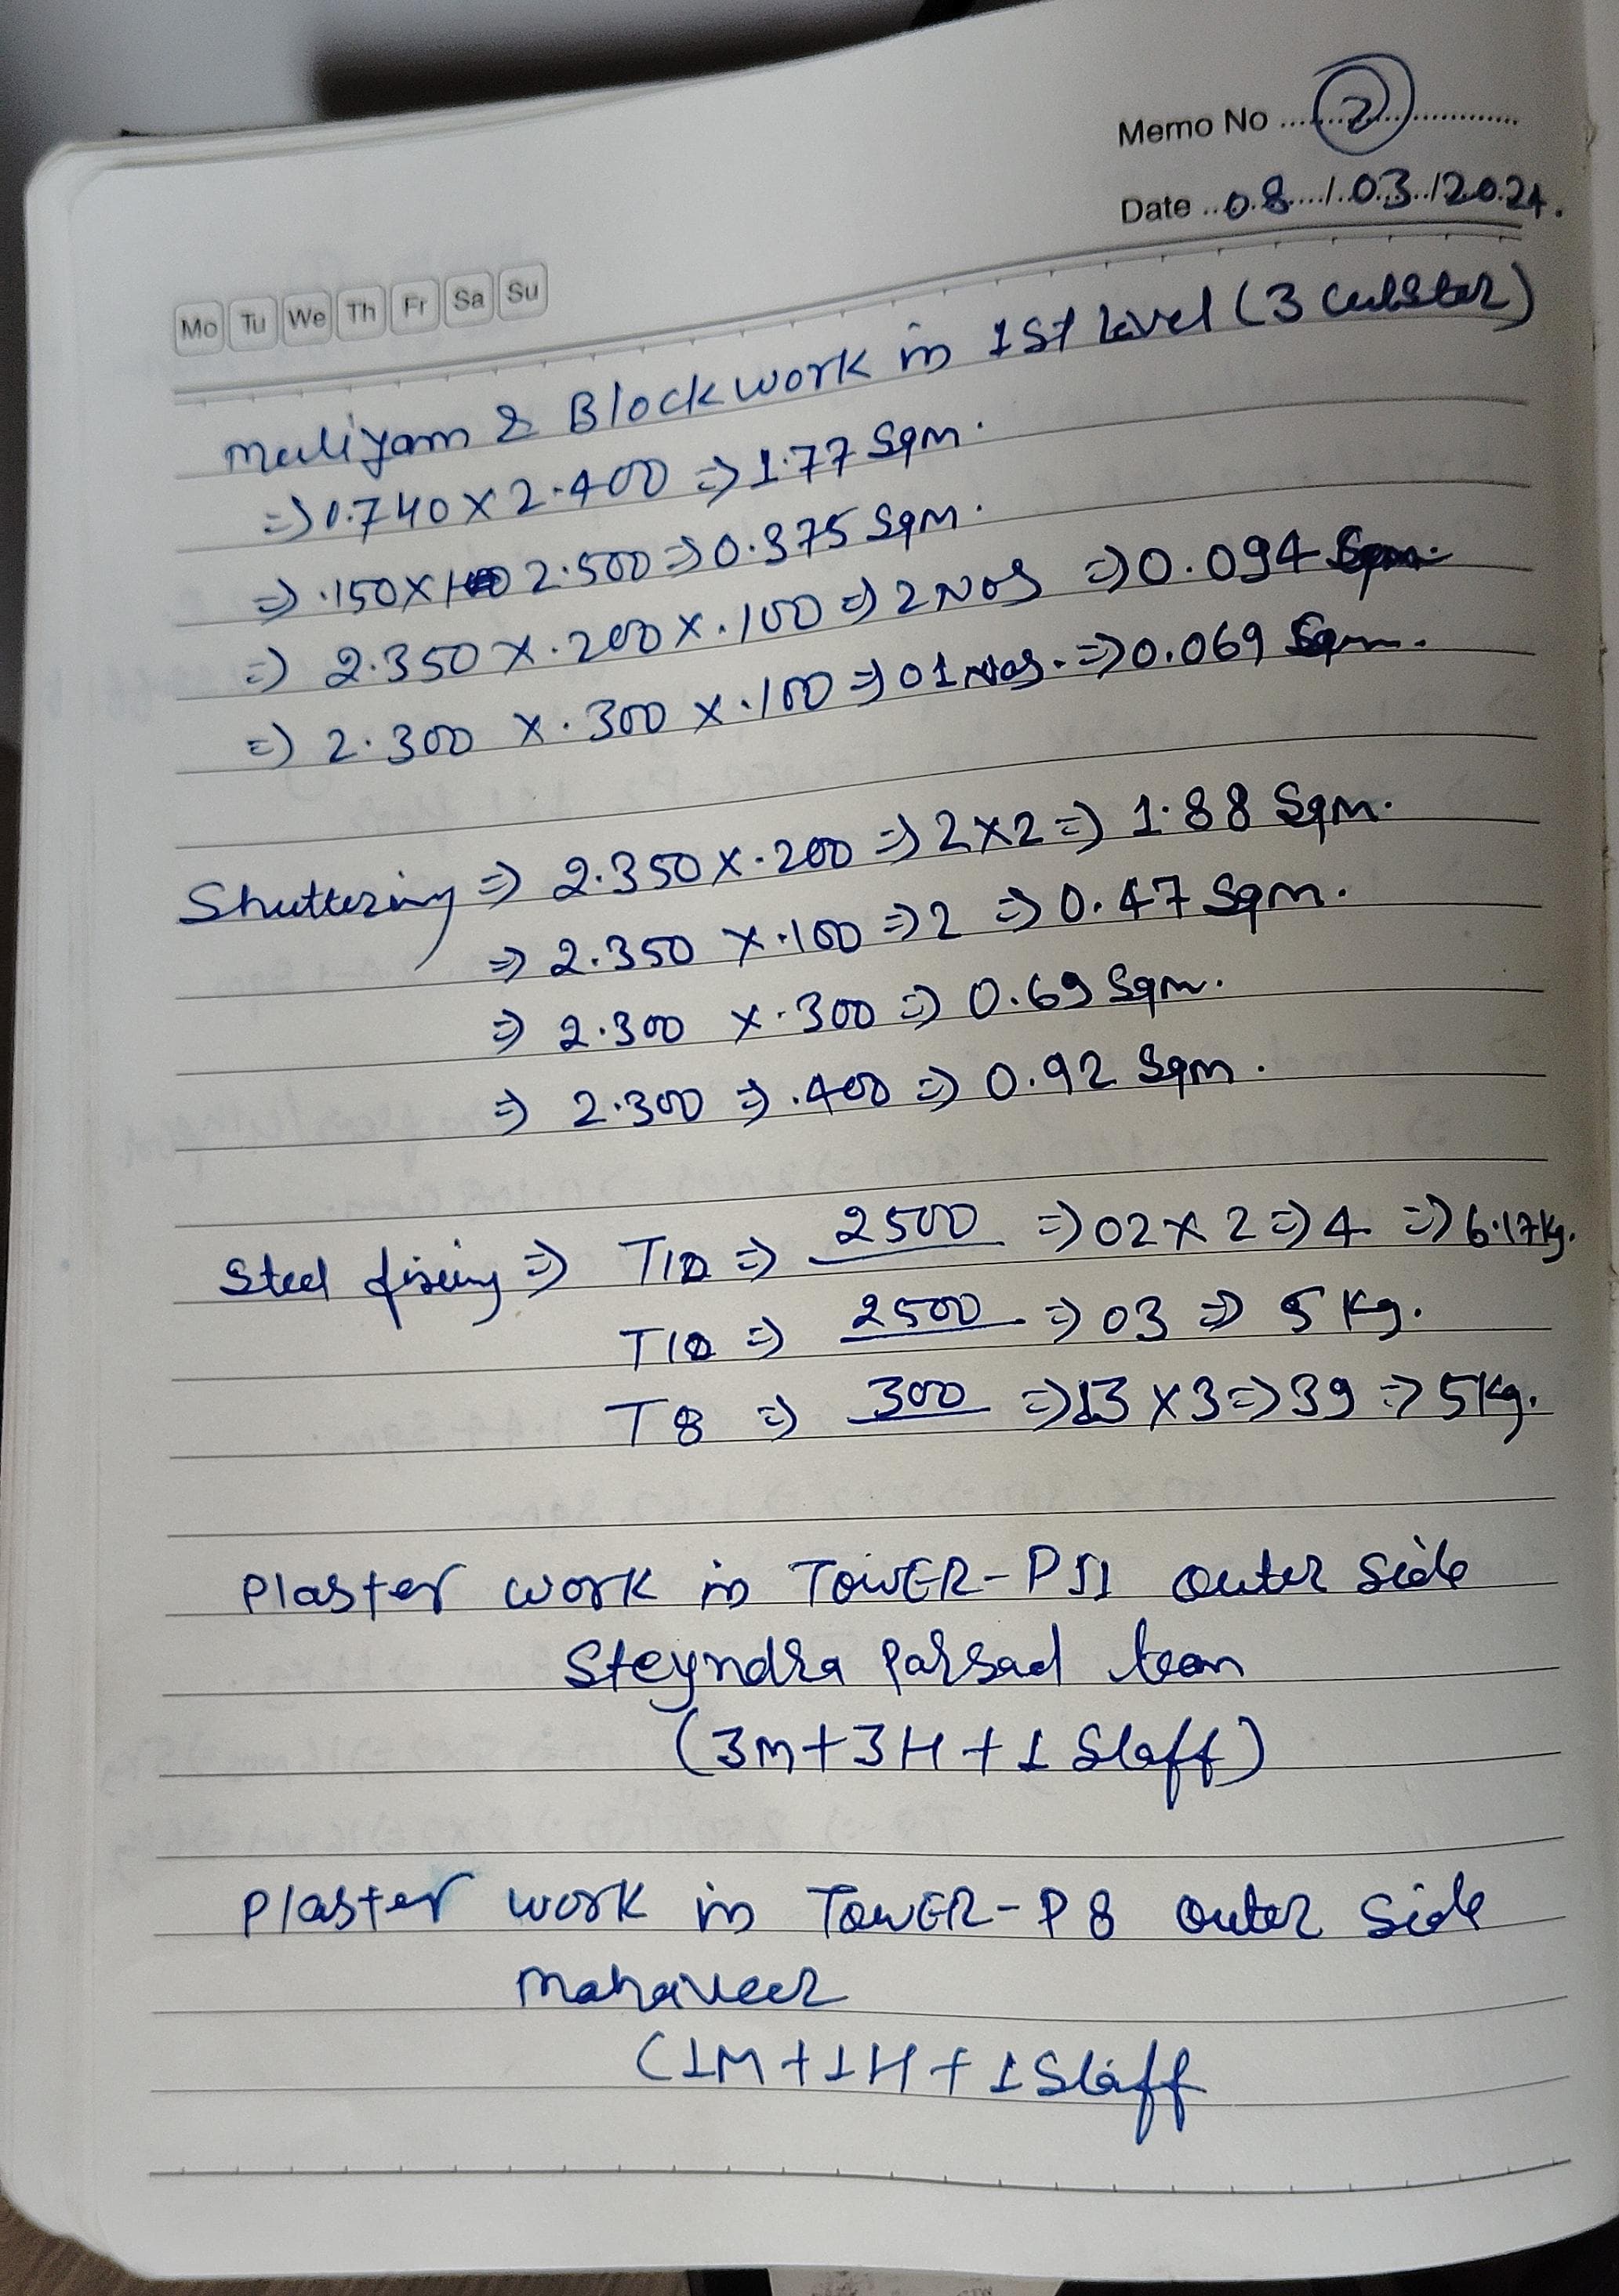 Memo No 2
Date 08/03/2024.
Mo Tu We Th Fr Sa Su
Muliyam & Block work in 1St Level (3 Culster)
=> 0.740 X 2.400 => 1.77 Sqm.
=> .150 X 2.500 => 0.375 Sqm.
=> 2.350 X .200 X .100 => 2 Nos => 0.094
=> 2.300 X .300 X .100 => 01 Nos. => 0.069
Shuttering => 2.350 X .200 => 2 X 2 => 1.88 Sqm.
=> 2.350 X .100 => 2 => 0.47 Sqm.
=> 2.300 X .300 => 0.69 Sqm.
=> 2.300 => .400 => 0.92 Sqm.
Steel fixing => T10 => 2500 => 02 X 2 => 4 => 6.17 Kg.
T10 => 2500 => 03 => 5 Kg.
T8 => 300 => 13 X 3 => 39 => 5 Kg.
Plaster work in TOWER-P11 outer side
Steyndra Parsad team
(3M + 3H + 1 Staff)
Plaster work in TOWER-P8 outer side
Mahaveer
(1M + 1H + 1 Staff